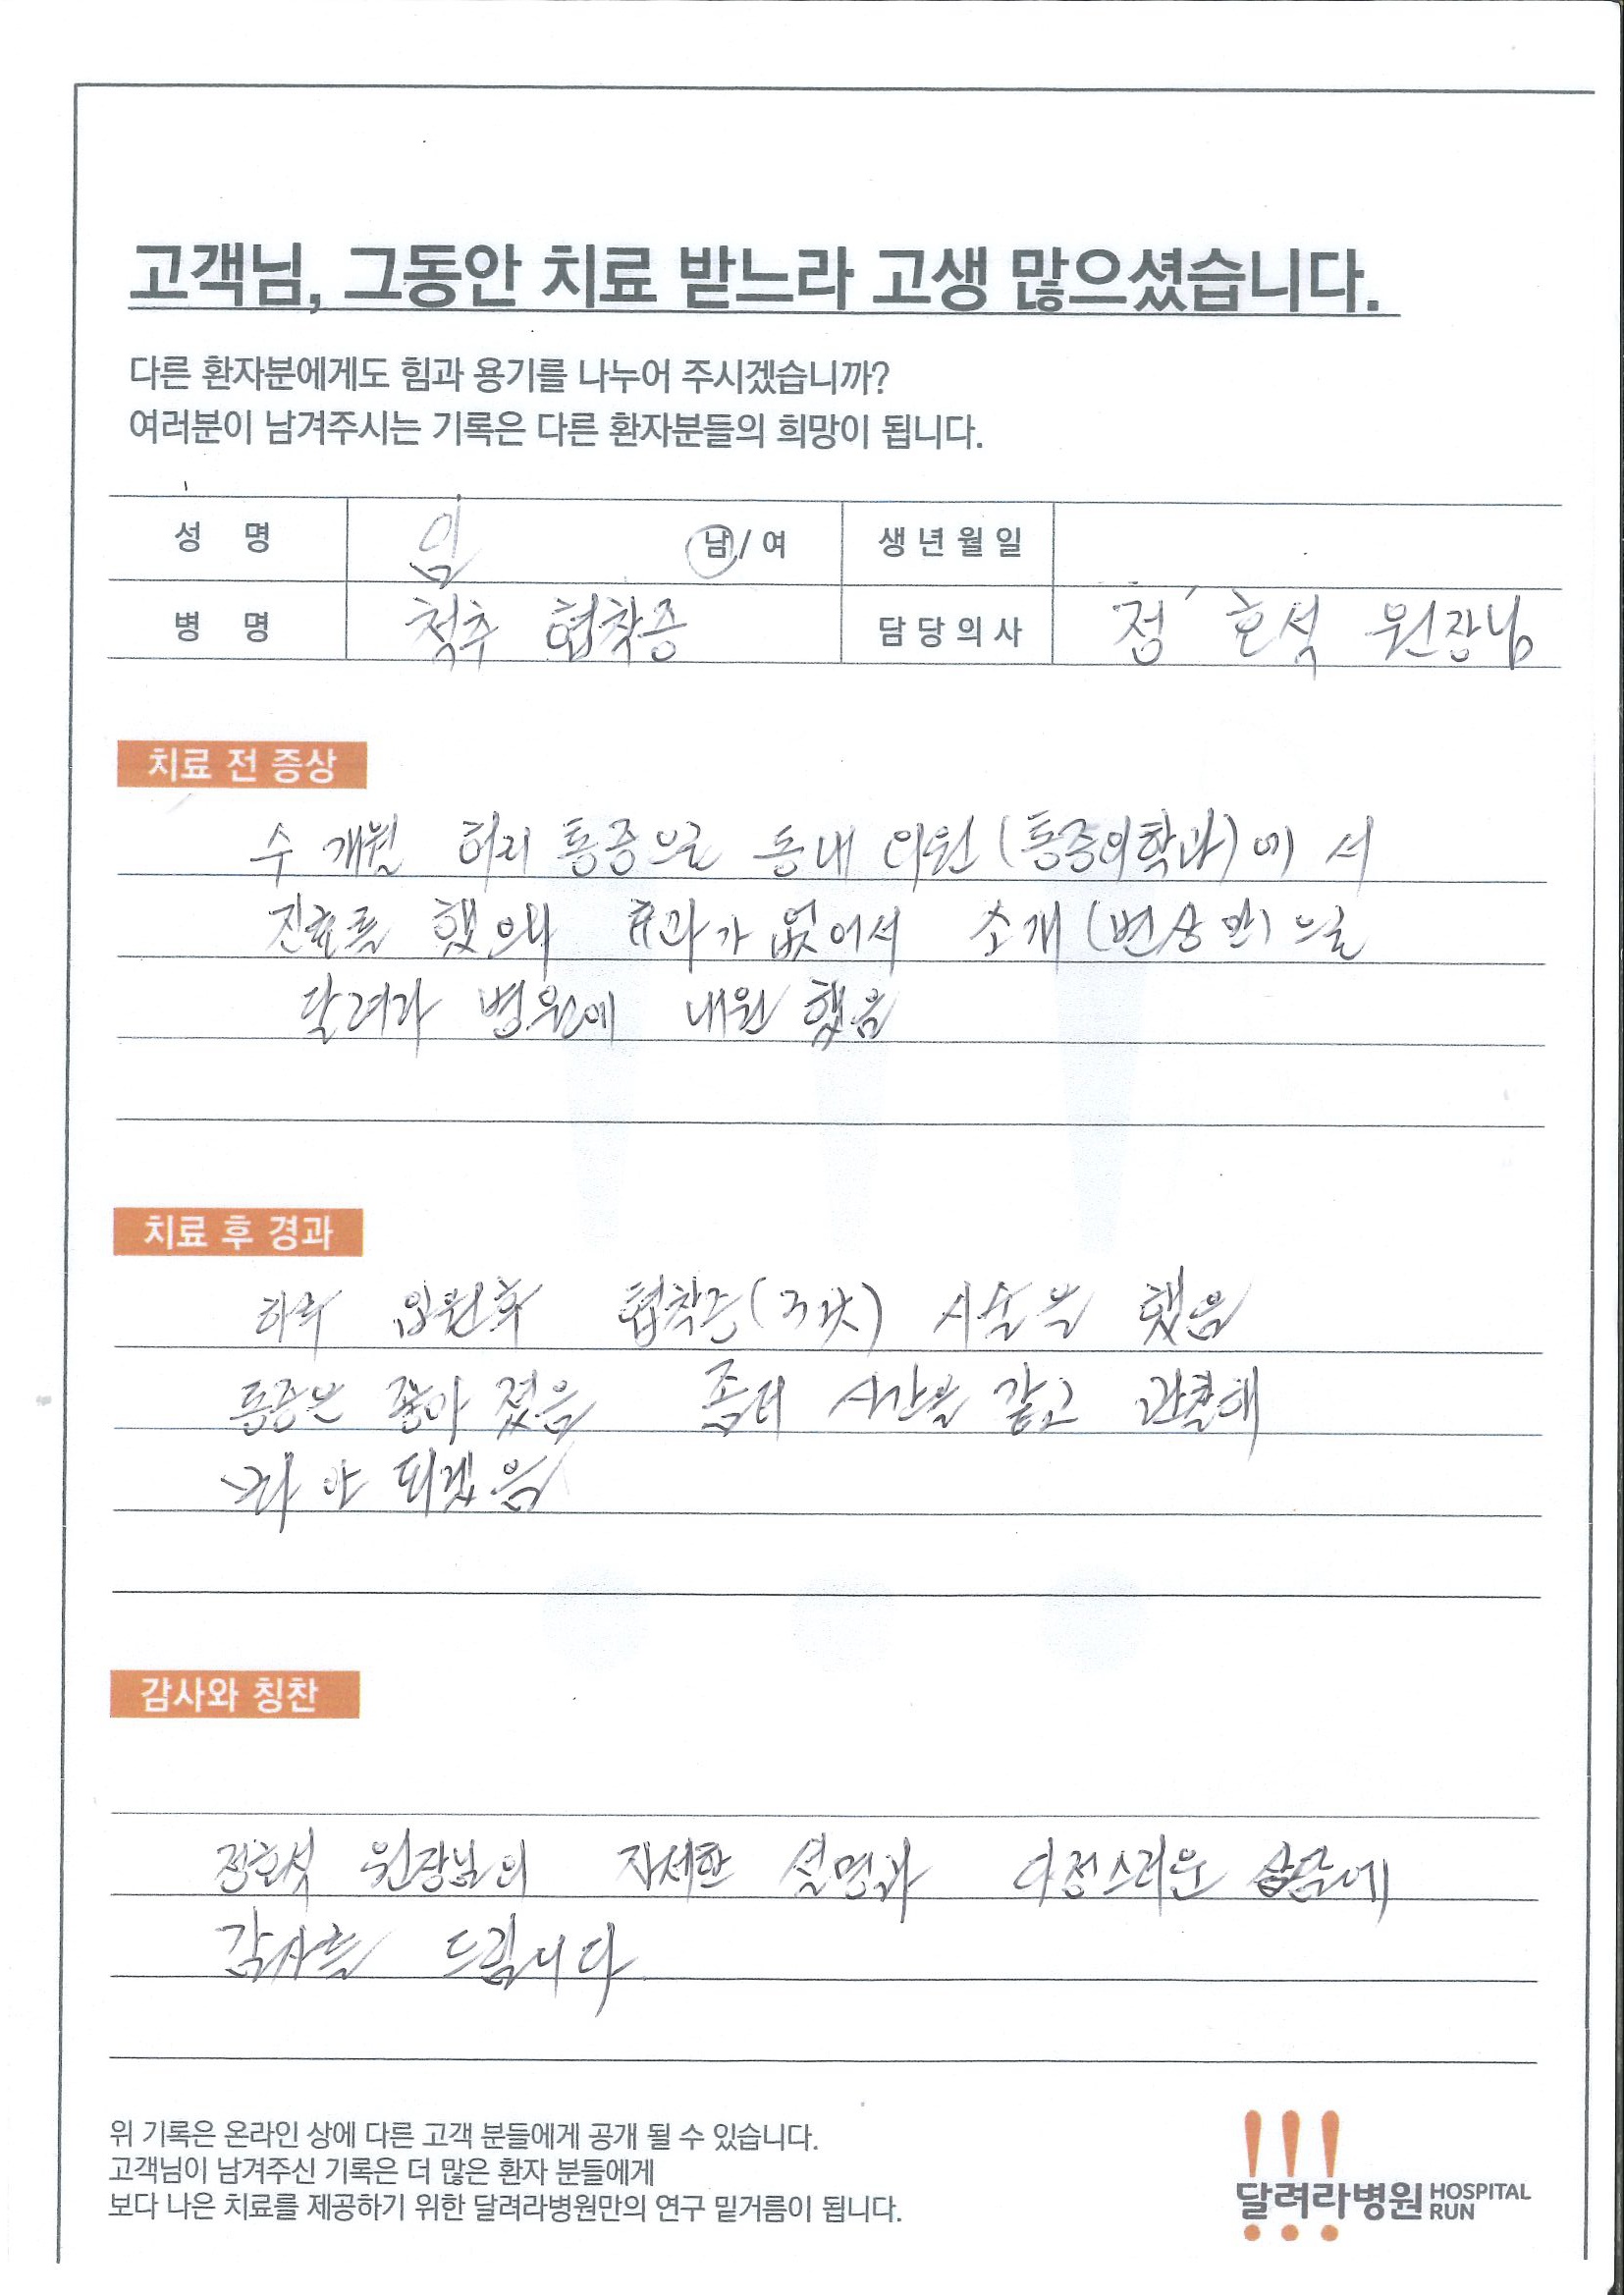 고객님, 그동안 치료 받느라 고생 많으셨습니다.
다른 환자분에게도 힘과 용기를 나누어 주시겠습니까?
여러분이 남겨주시는 기록은 다른 환자분들의 희망이 됩니다.
성 명 임 남 / 여 생년월일
병 명 척추 협착증 담당의사 정호석 원장님
치료 전 증상
수 개월 허리 통증으로 동내 의원 (통증의학과)에서
진료를 했으나 효과가 없어서 소개 으로
달려라 병원에 내원 했음
치료 후 경과
하루 입원후 협착증 시술을 했음
통증은 좋아 졌음 좀더 시간을 갖고 관찰해
나 되겠음
감사와 칭찬
정호석 원장님의 자세한 설명과 다정스러운 상담에
감사를 드립니다
위 기록은 온라인 상에 다른 고객 분들에게 공개 될 수 있습니다.
고객님이 남겨주신 기록은 더 많은 환자 분들에게
보다 나은 치료를 제공하기 위한 달려라병원만의 연구 밑거름이 됩니다.
달려라병원 HOSPITAL
RUN